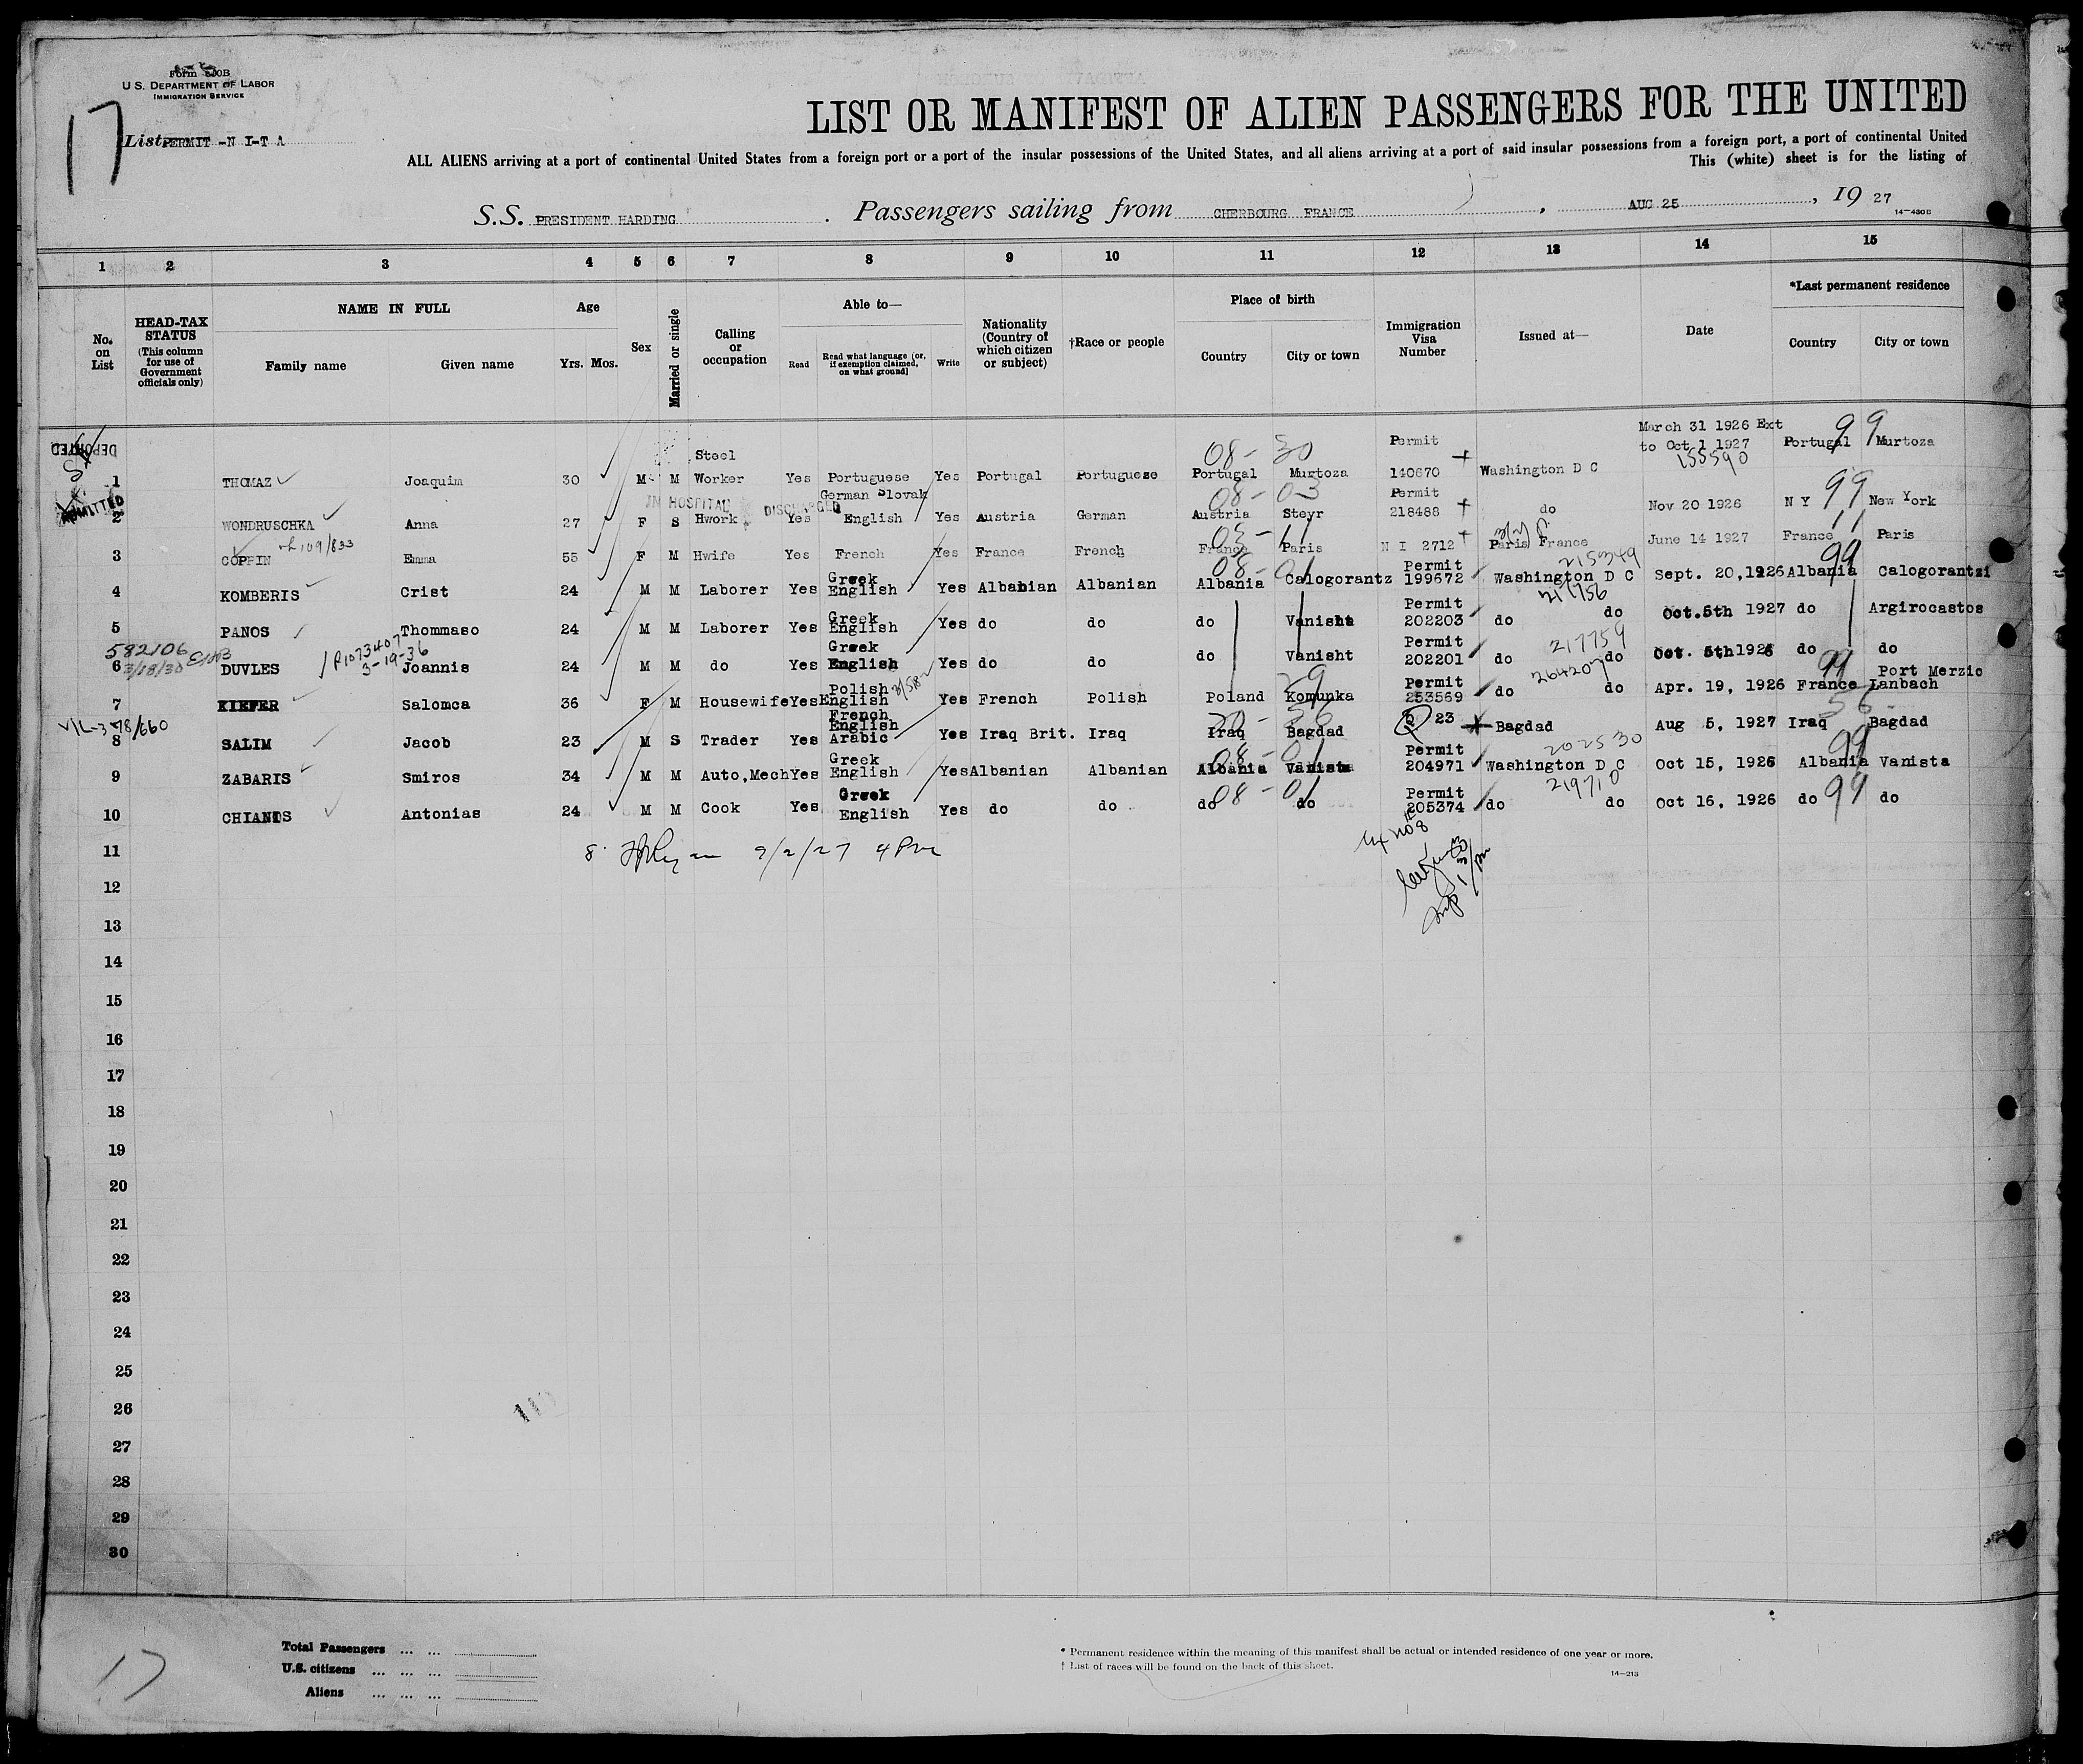 Form 500B
U. S. DEPARTMENT OF LABOR
IMMIGRATION SERVICE
17
List PERMIT -N I-T A
LIST OR MANIFEST OF ALIEN PASSENGERS FOR THE UNITED
ALL ALIENS arriving at a port of continental United States from a foreign port or a port of the insular possessions of the United States, and all aliens arriving at a port of said insular possessions from a foreign port, a port of continental United
This (white) sheet is for the listing of
S.S. PRESIDENT HARDING . Passengers sailing from CHERBOURG FRANCE , AUG 25 , 19 27
14-430B
1 2 3 4 5 6 7 8 9 10 11 12 13 14 15
No. on List
HEAD-TAX STATUS (This column for use of Government officials only)
NAME IN FULL
Family name Given name
Age
Yrs. Mos.
Sex
Married or single
Calling or occupation
Able to—
Read Read what language (or, if exemption claimed, on what ground) Write
Nationality (Country of which citizen or subject)
†Race or people
Place of birth
Country City or town
Immigration Visa Number
Issued at—
Date
*Last permanent residence
Country City or town
DEPORTED
1 THOMAZ Joaquim 30 M M Steel Worker Yes Portuguese Yes Portugal Portuguese Portugal Murtoza 08-30 Permit 140670 Washington D C March 31 1926 Ext to Oct 1 1927 155590 Portugal Murtoza 99
ADMITTED
IN HOSPITAL DISCHARGED
2 WONDRUSCHKA Anna 27 F S Hwork Yes German Slovak English Yes Austria German Austria Steyr 08-03 Permit 218488 do Nov 20 1926 N Y New York 99
3 COPPIN Emma 55 F M Hwife Yes French Yes France French France Paris 03-11 N I 2712 Paris France June 14 1927 France Paris 11
109/833
4 KOMBERIS Crist 24 M M Laborer Yes Greek English Yes Albanian Albanian Albania Calogorantz 08-01 Permit 199672 Washington D C 215349 Sept. 20,1926 Albania Calogorantzi 99
5 PANOS Thommaso 24 M M Laborer Yes Greek English Yes do do do Vanisht Permit 202203 do do 217756 Oct.5th 1927 do Argirocastos
582106
3/18/30
R1073407
3-19-36
6 DUVLES Joannis 24 M M do Yes Greek English Yes do do do Vanisht Permit 202201 do do 217759 Oct. 5th 1926 do do
7 KIEFER Salomca 36 F M Housewife Yes Polish English Yes French Polish Poland Komunka 29 Permit 253569 do do 264207 Apr. 19, 1926 France Port Merzio Lanbach 99
V/L-378/660
8 SALIM Jacob 23 M S Trader Yes French English Arabic Yes Iraq Brit. Iraq Iraq Bagdad Q 23 Bagdad Aug 5, 1927 Iraq Bagdad 56
9 ZABARIS Smiros 34 M M Auto,Mech Yes Greek English Yes Albanian Albanian Albania Vanista 08-01 Permit 204971 Washington D C 202530 Oct 15, 1926 Albania Vanista 99
10 CHIANOS Antonias 24 M M Cook Yes Greek English Yes do do do do 08-01 Permit 205374 do do 219710 Oct 16, 1926 do do 99
11 8 9/2/27 4 Pm
12
13
14
15
16
17
18
19
20
21
22
23
24
25
26
27
28
29
30
17
Total Passengers ... ...
U.S. citizens ... ... ...
Aliens ... ... ...
* Permanent residence within the meaning of this manifest shall be actual or intended residence of one year or more.
† List of races will be found on the back of this sheet.
14-213